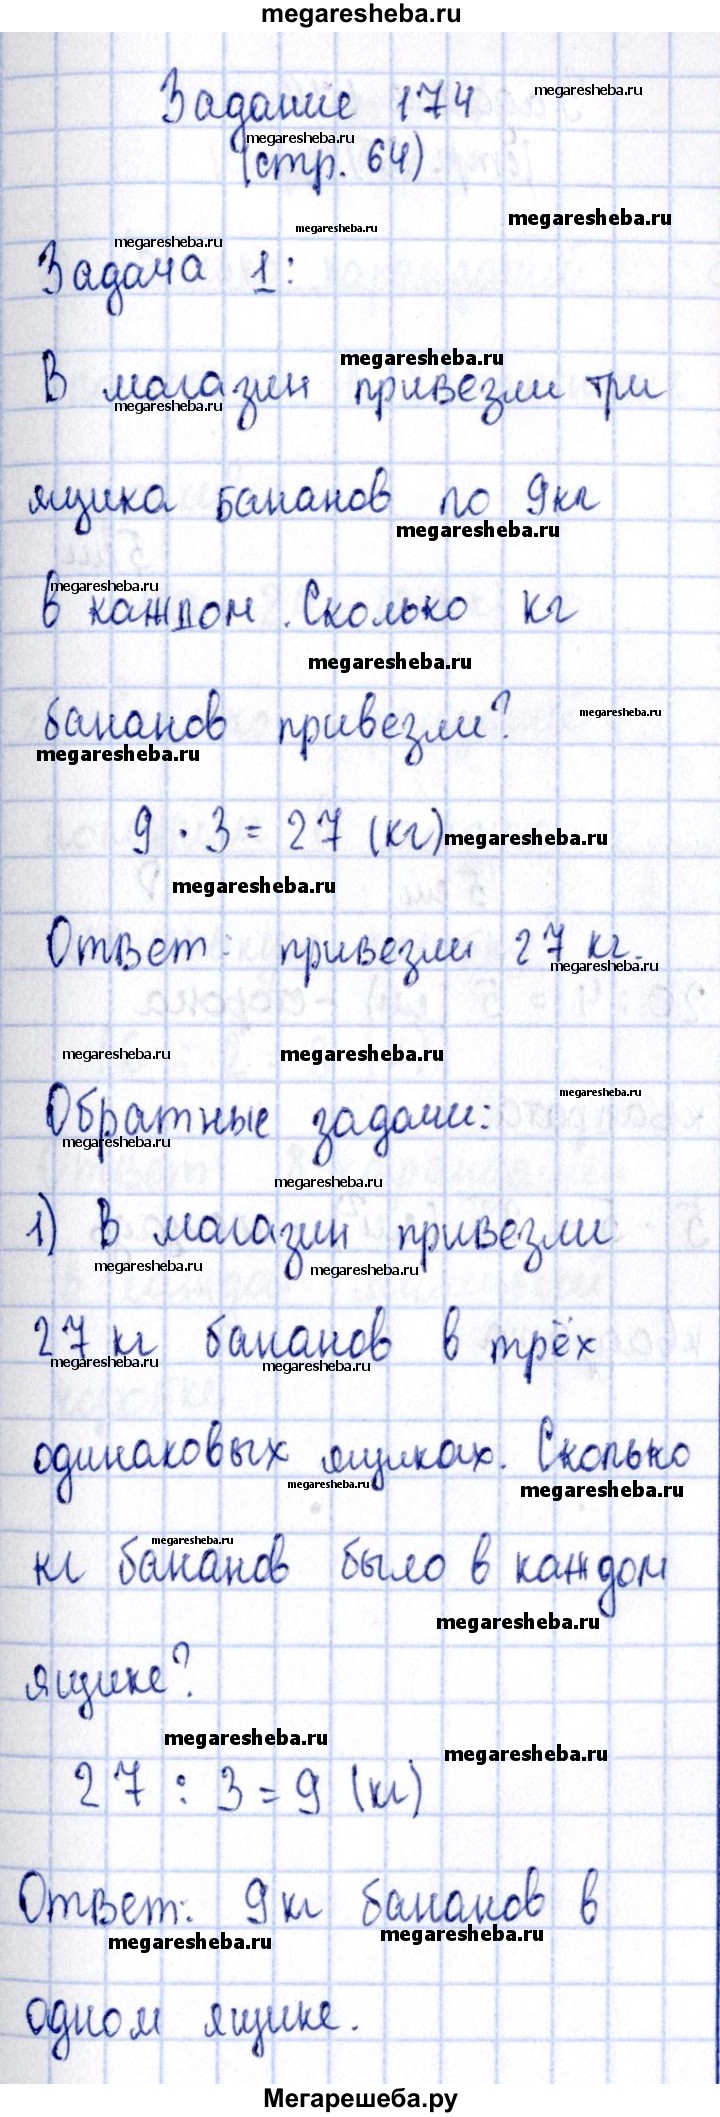 megaresheba.ru
Задание 174
(стр. 64)
Задача 1:
В магазин привезли три
ящика бананов по 9кг
в каждом. Сколько кг
бананов привезли?
9 · 3 = 27 (кг)
Ответ: привезли 27 кг.
Обратные задачи:
1) В магазин привезли
27 кг бананов в трёх
одинаковых ящиках. Сколько
кг бананов было в каждом
ящике?
27 : 3 = 9 (кг)
Ответ: 9кг бананов в
одном ящике.
Мегарешеба.ру